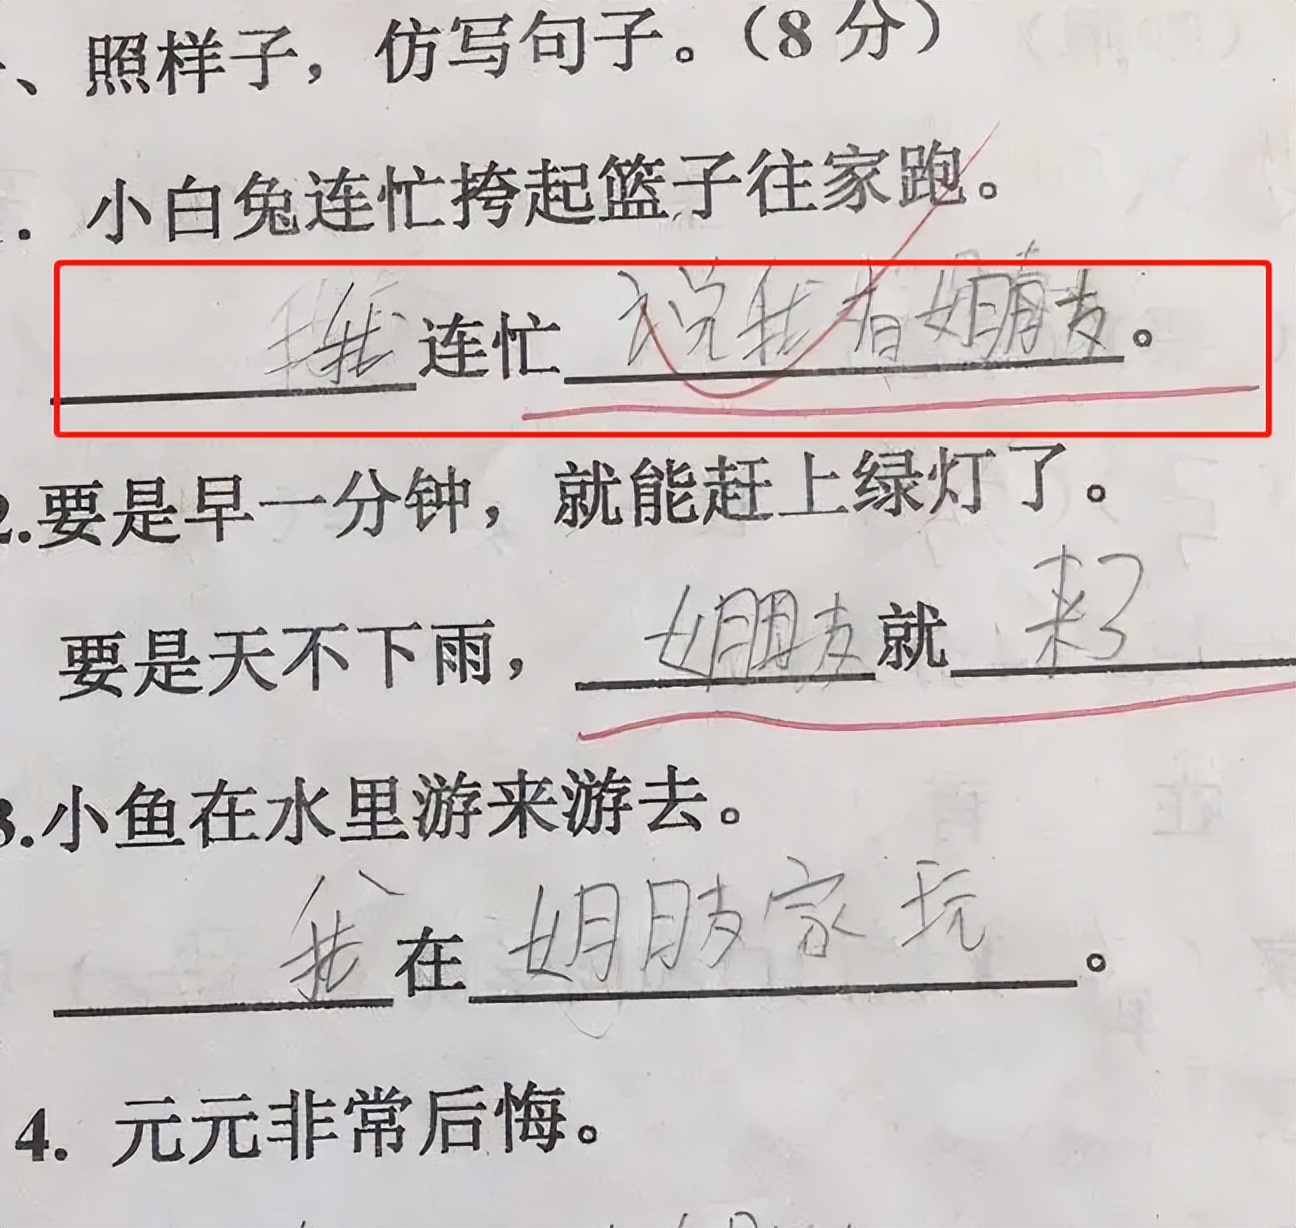 、照样子，仿写句子。（8 分）
. 小白兔连忙挎起篮子往家跑。
我连忙说我有女朋友。
2.要是早一分钟，就能赶上绿灯了。
要是天不下雨，女朋友就来了
3.小鱼在水里游来游去。
我在女朋友家玩。
4. 元元非常后悔。